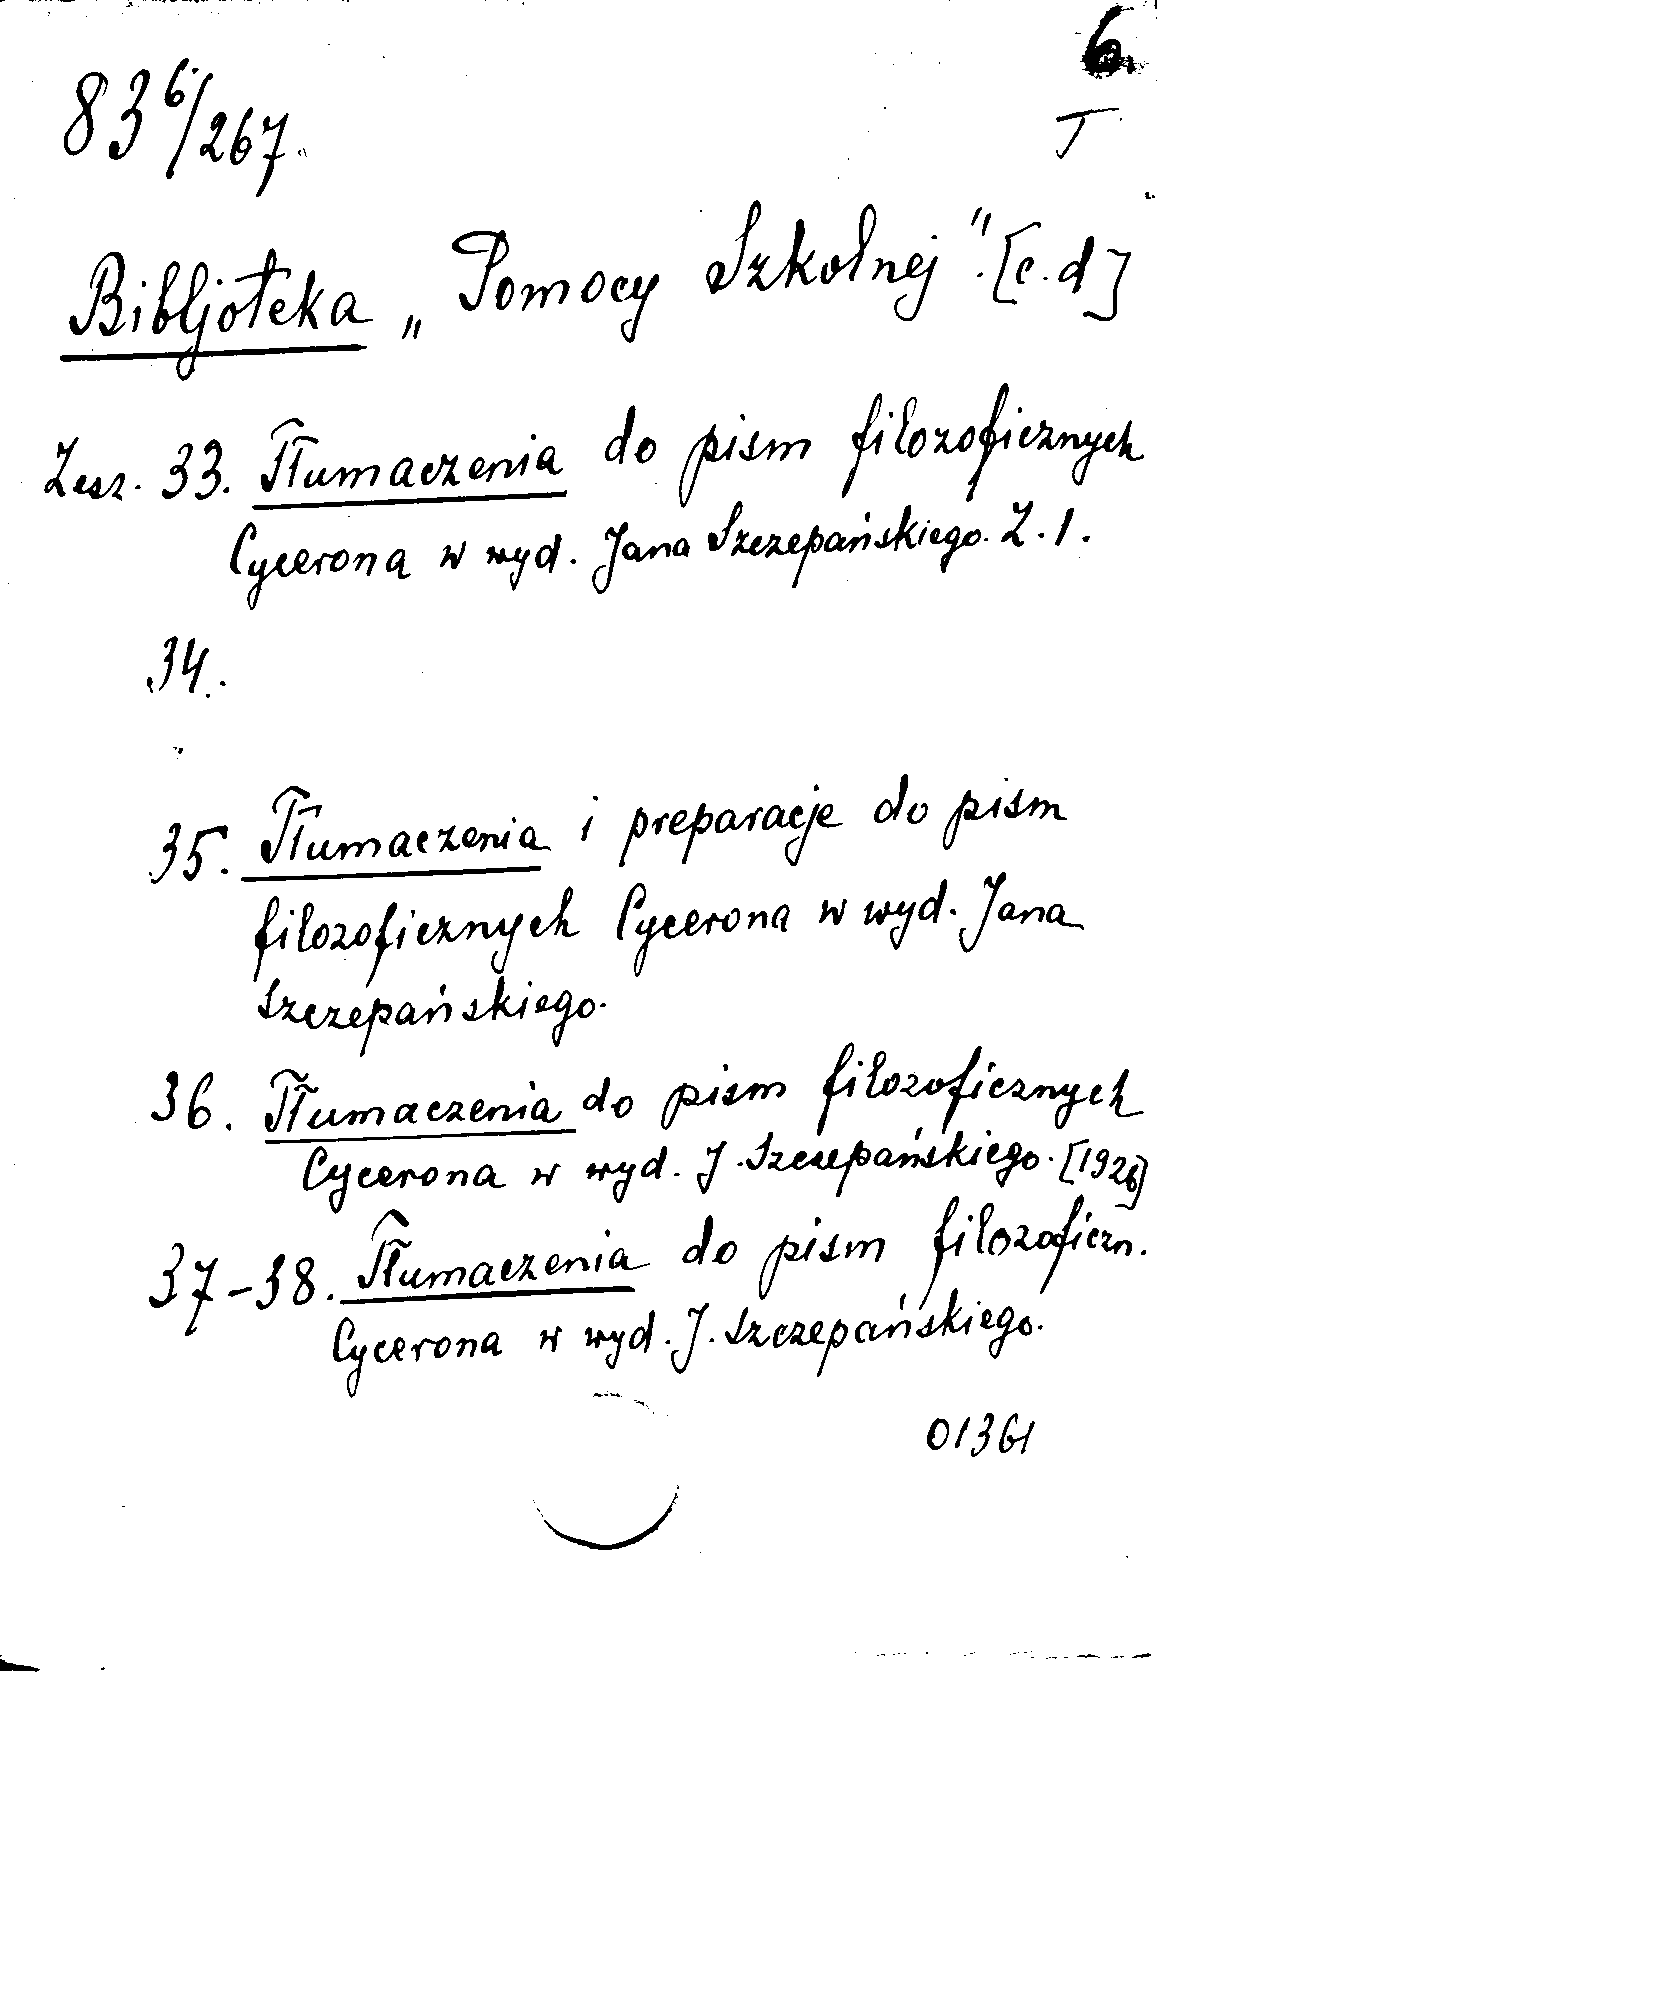 6.
83⁶/267.
T
Bibljoteka „Pomocy Szkolnej". [c.d]
Zesz. 33. Tłumaczenia do pism filozoficznych
Cycerona w wyd. Jana Szczepańskiego. Z. 1.
34.
35. Tłumaczenia i preparacje do pism
filozoficznych Cycerona w wyd. Jana
Szczepańskiego.
36. Tłumaczenia do pism filozoficznych
Cycerona w wyd. J. Szczepańskiego. [1926]
37-38. Tłumaczenia do pism filozoficzn.
Cycerona w wyd. J. Szczepańskiego.
01361